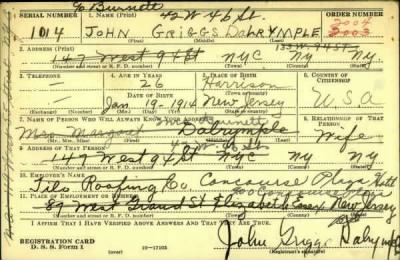 % Burnett 42 W. 46 St.
SERIAL NUMBER 1. NAME (Print) ORDER NUMBER
1014 JOHN GRIGGS DALRYMPLE 2004
(First) (Middle) (Last) 2003
2. ADDRESS (Print) 133 W 94 ST
147 West 94 St NYC NY NY
(Number and street or R. F. D. number) (Town) (County) (State)
3. TELEPHONE 4. AGE IN YEARS 5. PLACE OF BIRTH 6. COUNTRY OF CITIZENSHIP
— 26 Harrison
DATE OF BIRTH (Town or county)
— Jan. 19 - 1914 New Jersey U.S.A
(Exchange) (Number) (Mo.) (Day) (Yr.) (State or country)
7. NAME OF PERSON WHO WILL ALWAYS KNOW YOUR ADDRESS Burnett 8. RELATIONSHIP OF THAT PERSON
Mrs. Margaret Dalrymple Wife
(Mr., Mrs., Miss) (First) (Middle) (Last)
9. ADDRESS OF THAT PERSON 42 W 46 St.
147 West 94 St NYC NY NY
(Number and street or R. F. D. number) (Town) (County) (State)
10. EMPLOYER'S NAME
Tilo Roofing Co Concourse Plaza Hotel
11. PLACE OF EMPLOYMENT OR BUSINESS
89 West Grand St Elizabeth Essex New Jersey
(Number and street or R. F. D. number) (Town) (County) (State)
I AFFIRM THAT I HAVE VERIFIED ABOVE ANSWERS AND THAT THEY ARE TRUE.
REGISTRATION CARD
D. S. S. FORM 1 16—17105 John Griggs Dalrymple